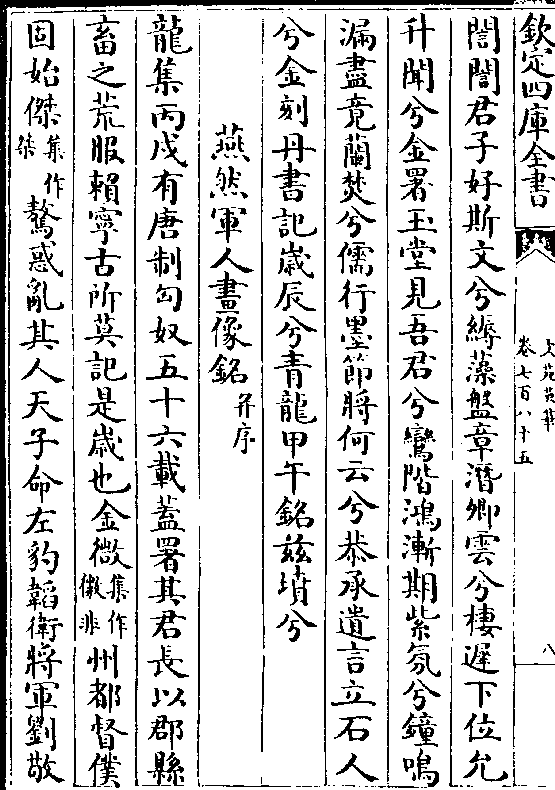 欽定四庫全書
文苑英華
卷七百八十五
八
誾誾君子好斯文兮縟藻盤章潛卿雲兮棲遲下位允
升聞兮金署玉堂見吾君兮鸞階鴻漸期紫氛兮鐘鳴
漏盡竟蘭焚兮儒行墨節將何云兮恭承遺言立石人
兮金刻丹書記嵗辰兮青龍甲午銘兹墳兮
燕然軍人畫像銘并序
龍集丙戌有唐制匈奴五十六載蓋署其君長以郡縣
畜之荒服賴寧古所莫記是歳也金微集作徽非州都督僕
固始傑集作桀驁惑亂其人天子命左豹韜衛將軍劉敬